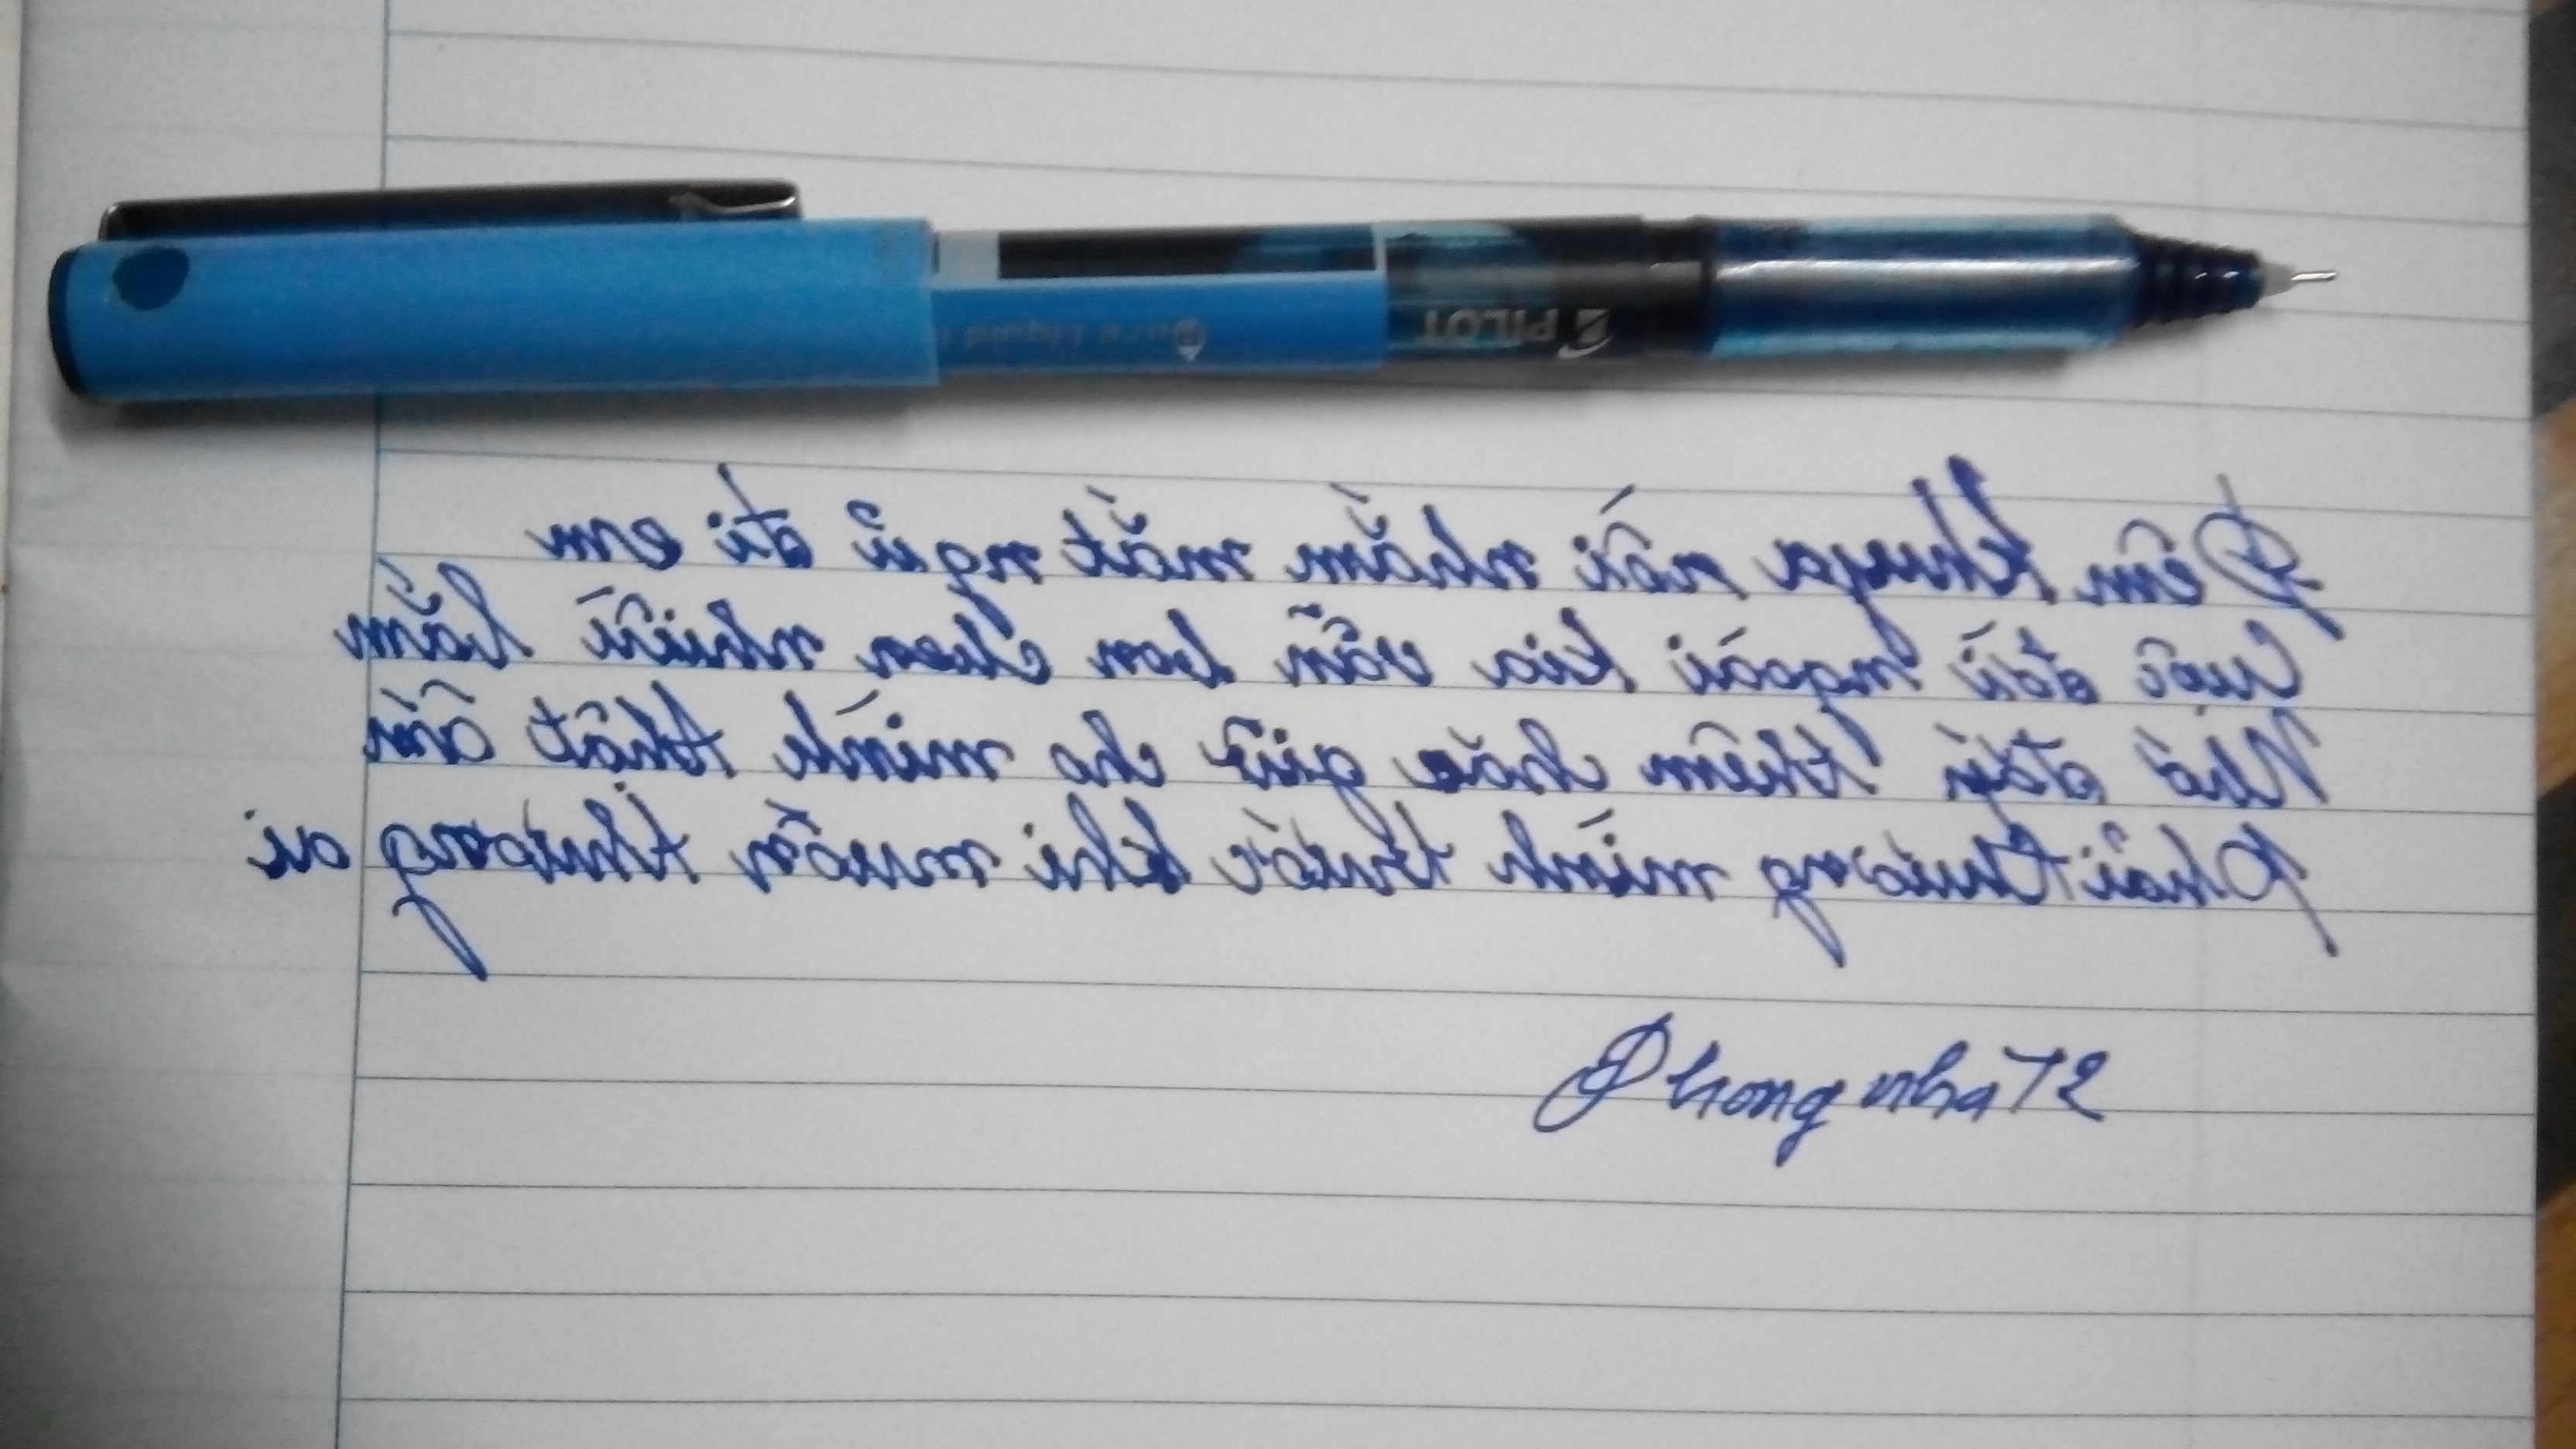 Pure Liquid
PILOT
Đêm khuya rồi nhắm mắt ngủ đi em
Cuộc đời ngoài kia vẫn bon chen nhiều lắm
Nhớ đắp thêm chăn giữ cho mình thật ấm
Phải thương mình trước khi muốn thương ai
Phong nha 72